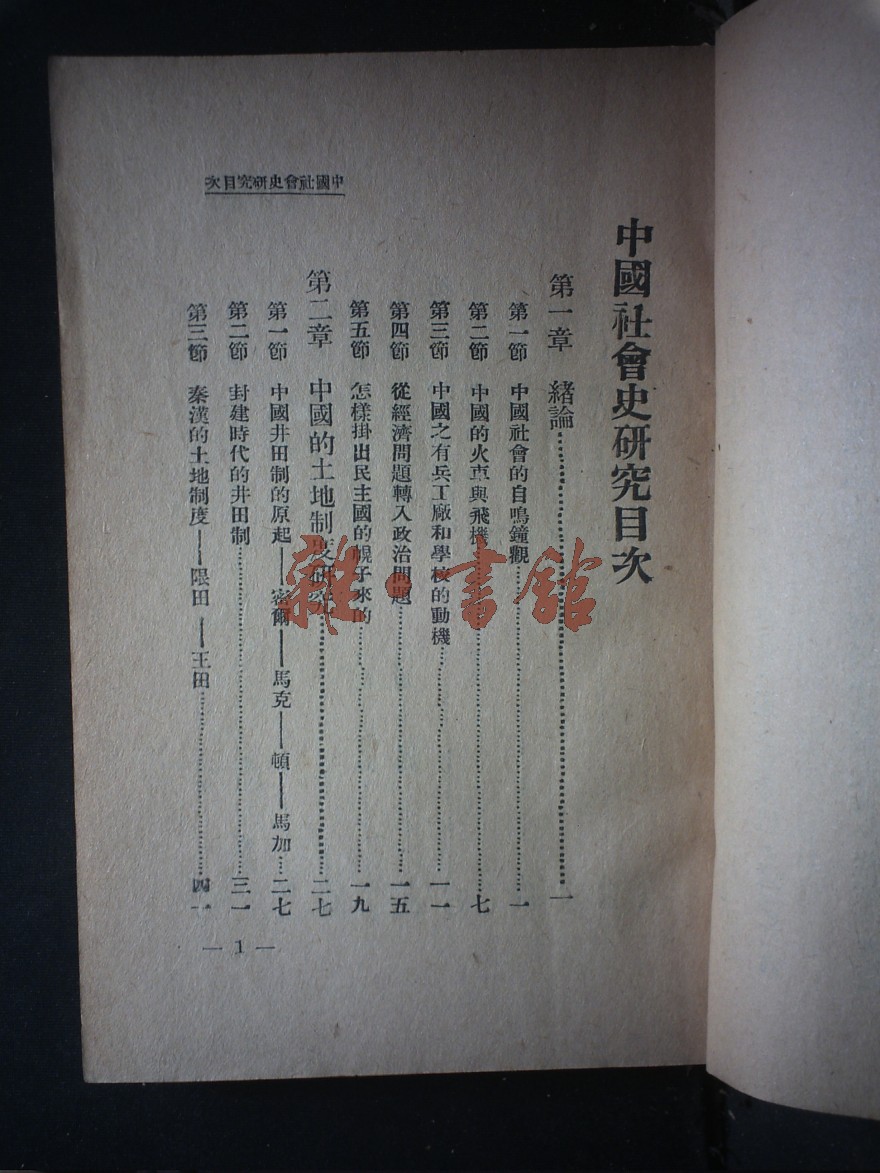 中國社會史研究目次
中國社會史研究目次
第一章 緒論…………一
第一節 中國社會的自鳴鐘觀…………一
第二節 中國的火車與飛機…………七
第三節 中國之有兵工廠和學校的動機…………一一
第四節 從經濟問題轉入政治問題…………一五
第五節 怎樣掛出民主國的幌子來的…………一九
第二章 中國的土地制度研究…………二七
第一節 中國井田制的原起——密爾——馬克——頓——馬加…二七
第二節 封建時代的井田制…………三一
第三節 秦漢的土地制度——限田——王田…………四一
— 1 —
雜·書館